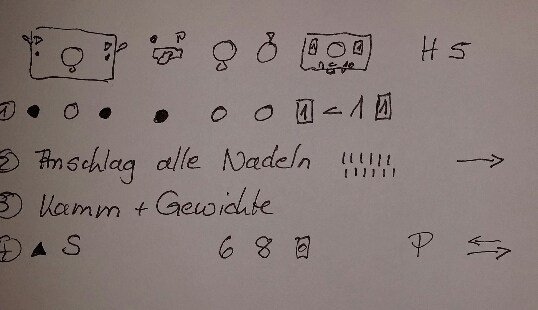 H S
① ● ○ ● ● ○ ○ 1 < 1 1
② Anschlag alle Nadeln →
③ Kamm + Gewichte
④ ▲ S 6 8 0 P ⇆